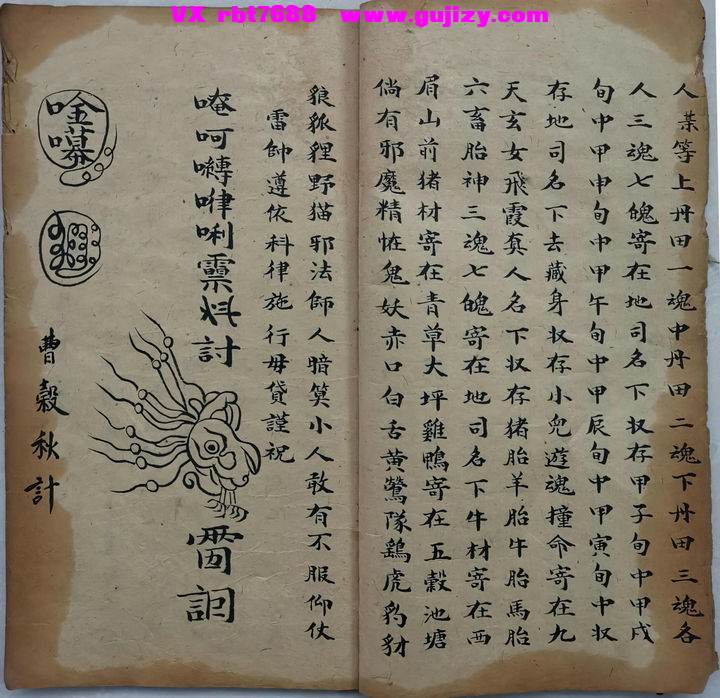 VX rbt7688 www.gujizy.com
人某等上丹田一魂中丹田二魂下丹田三魂各
人三魂七魄寄在地司名下収存甲子旬中甲戌
旬中甲申旬中甲午旬中甲辰旬中甲寅旬中収
存地司名下去藏身収存小児遊魂撞命寄在九
天玄女飛霞真人名下収存猪胎羊胎牛胎馬胎
六畜胎神三魂七魄寄在地司名下牛材寄在西
眉山前猪材寄在青草大坪雞鴨寄在五穀池塘
倘有邪魔精怪鬼妖赤口白舌黄鶯隊鷂虎豹豺
狼狐狸野猫邪法師人暗算小人敢有不服仰仗
雷帥遵依科律施行毋貸謹祝
唵呵囀嘩唎靈
討
曹穀秋計